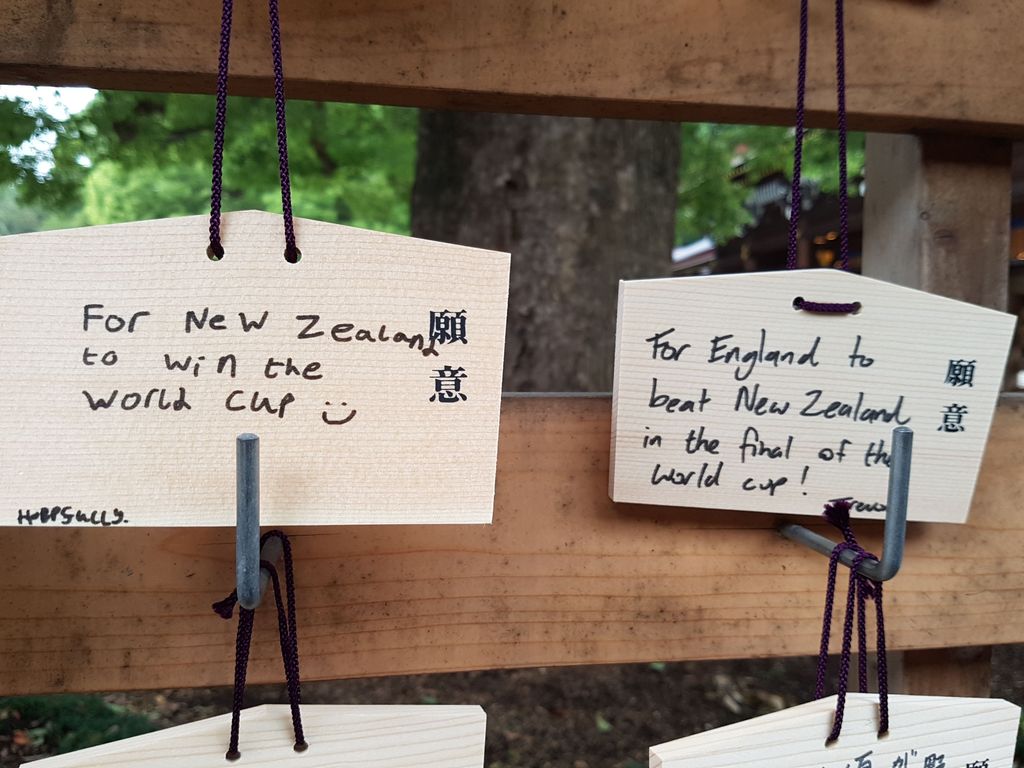 For New Zealand
to win the
World Cup
願意
For England to
beat New Zealand
in the final of the
World cup!
願意
願